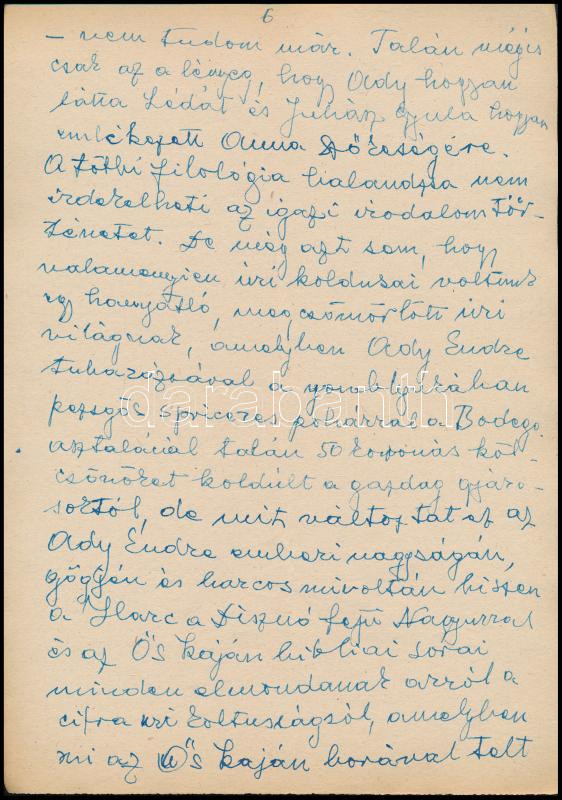 6
– nem tudom már. Talán mégis
csak az a lényeg, hogy Ady hogyan
látta Lédát és Juhász Gyula hogyan
emlékezett Anna örökségére.
A többi filológia halandzsa nem
érdekelheti az igazi irodalomtör-
ténetet. De még azt sem, hogy
valamennyien úri koldusai voltunk
egy hanyatló, megcsömörlött úri
világnak, amelyben Ady Endre
tubarózsával a gomblyukában
pezsgős spricceres pohárral a Bodega
asztalánál talán 50 koronás köl-
csönöket koldult a gazdag gyáro-
sortól, de mit változtat ez az
Ady Endre emberi nagyságán,
gőgjén és harcos mivoltán hiszen
a Harc a Disznófejű Nagyurral
és az Ős Kaján bibliai sorai
minden elmondanak arról a
cifra úri koltusságról, amelyben
mi az Ős Kaján borával telt
darabanth